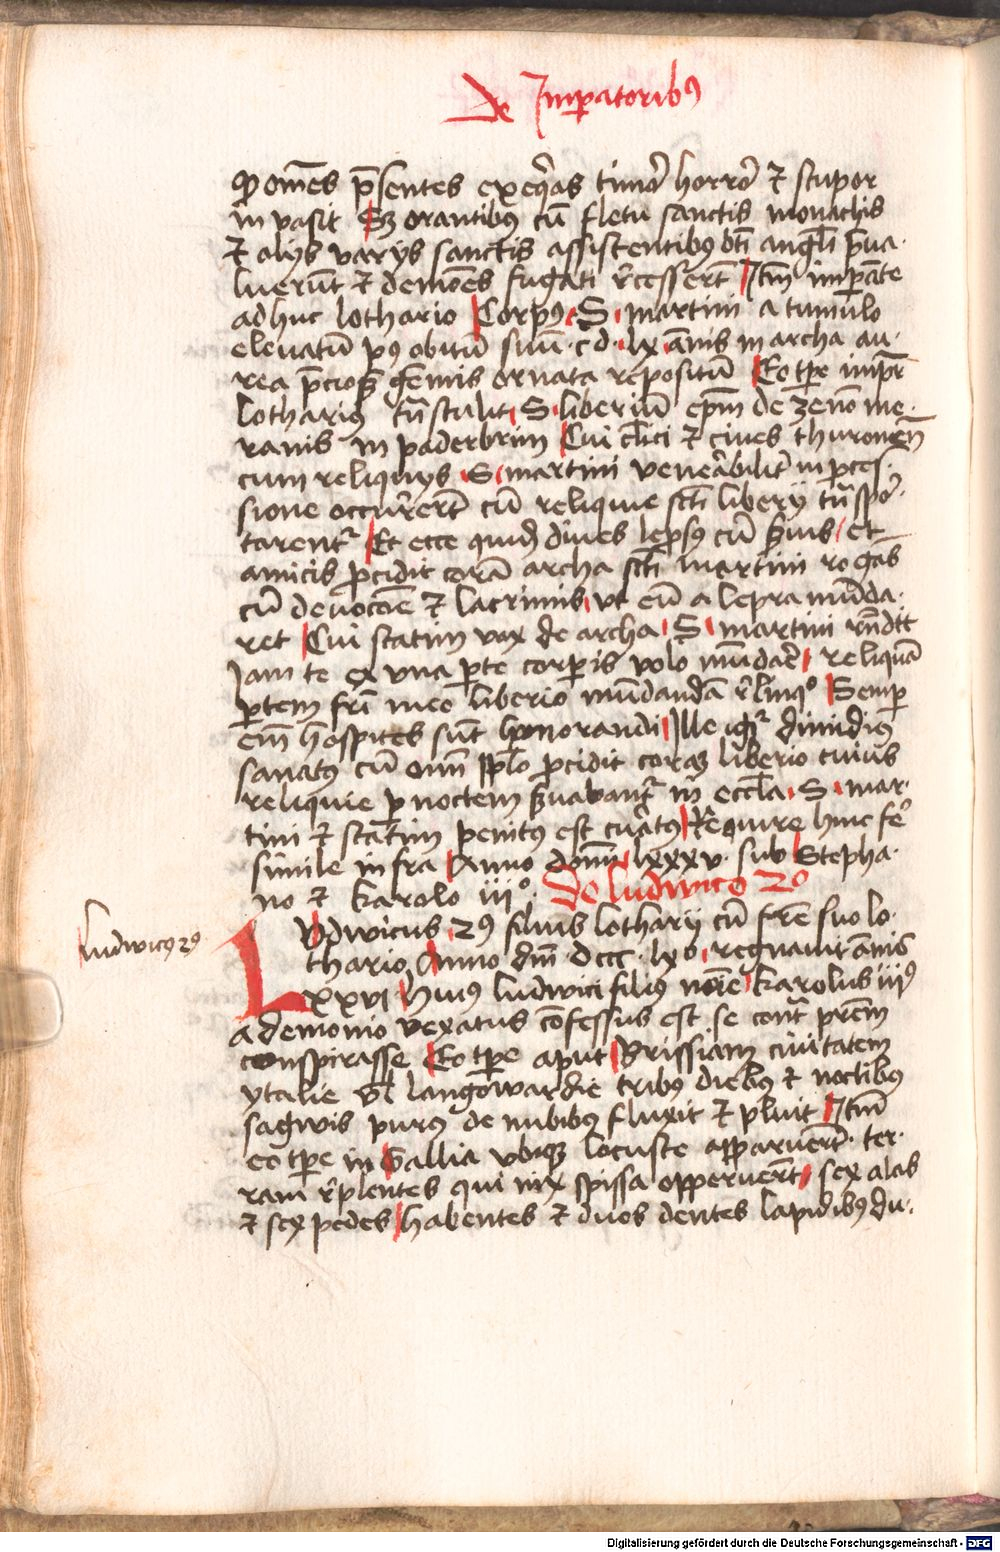 De Imperatoribꝰ
ꝙ om̄es p̄sentes exeq̄as timor̄ horror̄ et stupor
in vasit Sꝫ orantibꝰ cū fletu sanctis monachis
et alijs varijs sanctis assistentibꝰ bt̄i angeli p̄ua-
luerūt et demōes fugati recessert̄ Itm̄ impante
adhuc lothario Corpꝰ S martini a tumulo
eleuatū pꝰ obitū suū cd lx ānis in archa au-
rea p̄ciosꝫ gemis ornata repositū Eo tpe impr̄
lothariꝰ tn̄stulit S liberiū ep̄m de zenōme-
ranis in paderbrun Cui cl̄ici et ciues thuronen̄
cum reliquijs S martini venerabilit̄ in proces-
sione occurrert̄ cū reliquie scti liberij tn̄spor-
tarent Et ecce quidā diues leprosꝰ cū suis et
amicis procidit corā archa scti martini rogās
cū deuocōe et lacrimis vt eū a lepra mūda-
ret Cui statim vox de archa S martini rn̄dit
Jam te ex vna pte corporis volo mūdare reliquā
ptem fri meo liberio mūdandā relinqo Semp
em̄ hospites sūt honorandi Ille igr̄ dimidiꝰ
sanatꝰ cū omi pplo procidit corā liberio cuius
reliquie p noctem suabant̄ in eccl̄a S mar-
tini et statim penitꝰ est curatꝰ Require huic fe-
simile infra Anno domi lxxxv sub Stepha-
no et Karolo iijo De ludwico 2o
ludwicꝰ 2ꝰ
Lvdwicus 2ꝰ filius lotharij cū fre suo lo-
thario Anno dm̄ dccc lvo regnauit ānis
xxvi Huius ludwici filiꝰ noīe Karolus iijꝰ
a demonio vexatus cōfessus est se cont̄ prem̄
conspirasse Eo tpe aput Brissiam ciuitatem
ytalie vl̄ langōwardie tribꝰ diebꝰ et noctibꝰ
sagwis purꝰ de nubibꝰ fluxit et pluit Itm̄
eo tpe in Gallia vbiqꝫ locuste apparuert̄ ter-
ram replentes qui nix spissa operuert̄ sex alas
et sex pedes habentes et duos dentes lapidibꝰ du-
Digitalisierung gefördert durch die Deutsche Forschungsgemeinschaft - DFG